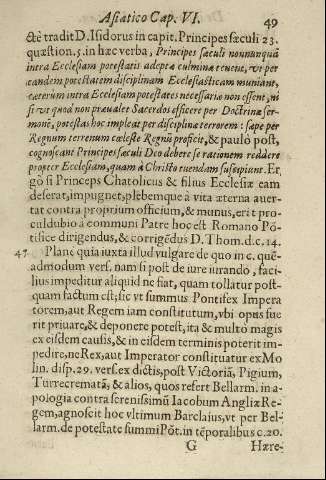 Asiatico Cap. VI. 49
ctè tradit D. Isidorus in capit. Principes sæculi 23.
quæstion. 5. in hæc verba, Principes sæculi nonnunquã
intra Ecclesiam potestatis adeptæ culmina tenent, vt per
eandem potestatem disciplinam Ecclesiasticam muniant,
cæterùm intra Ecclesiam potestates necessariæ non essent, ni
si vt quod non præualet Sacerdos efficere per Doctrinæ ser-
monẽ, potestas hoc impleat per disciplinæ terrorem: sæpe per
Regnum terrenum cæleste Regnũ proficit, & paulò post,
cognoscant Principes sæculi Deo debere se rationem reddere
propter Ecclesiam, quam à Christo tuendam suscipiunt. Er-
gò si Princeps Chatolicus & filius Ecclesiæ eam
deserat, impugnet, plebemque à vita æterna auer-
tat contra proprium officium, & munus, erit pro
culdubio à communi Patre hoc est Romano Põ-
tifice dirigendus, & corrigẽdus D. Thom. d. c. 14.
47 Planè quia iuxta illud vulgare de quo in c. quẽ-
admodum vers. nam si post de iure iurando, faci-
lius impeditur aliquid ne fiat, quam tollatur post-
quam factum est; sic vt summus Pontifex Impera
torem, aut Regem iam constitutum, vbi opus fue
rit priuare, & deponere potest, ita & multò magis
ex eisdem causis, & in eisdem terminis poterit im-
pedire, ne Rex, aut Imperator constituatur ex Mo
lin. disp. 29. vers. ex dictis, post Victoriã, Pigium,
Turrecrematã, & alios, quos refert Bellarm. in a-
pologia contra serenissimũ Iacobum Angliæ Re-
gem, agnoscit hoc vltimum Barclaius, vt per Bel-
larm. de potestate summi Põt. in tẽporalibus c. 20.
G Hære-